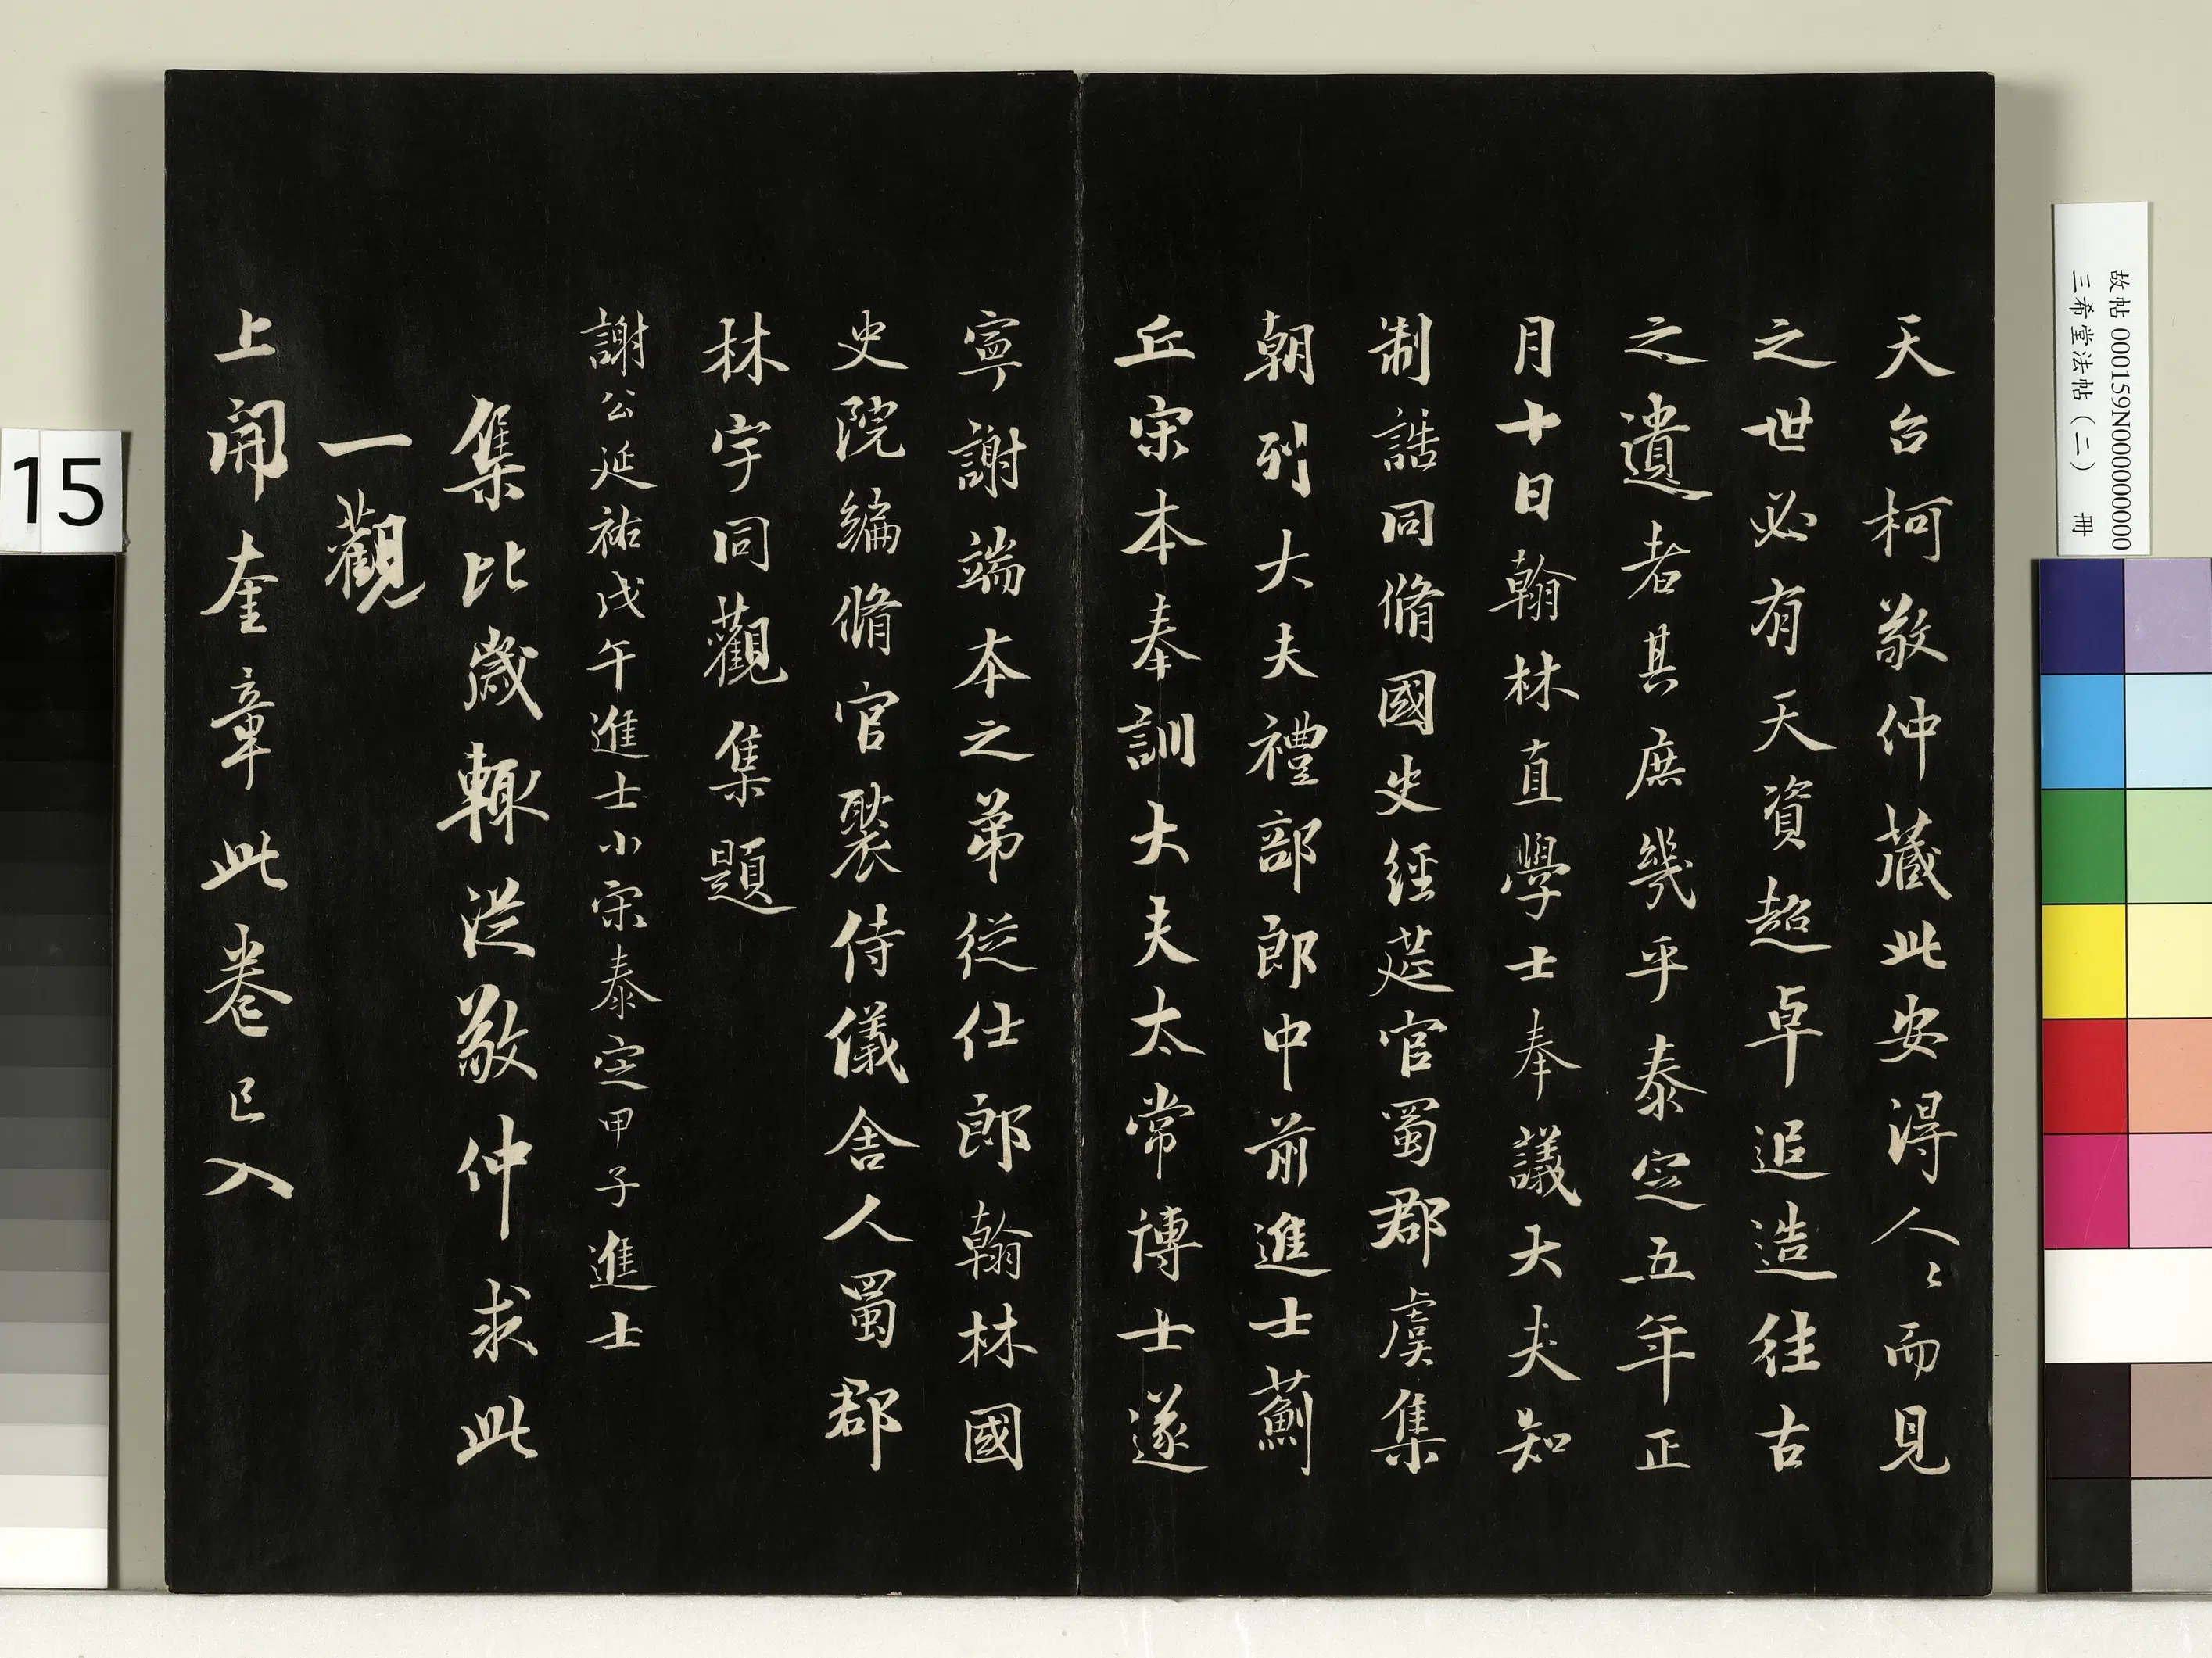 天台柯敬仲藏此安得人〻而見
之世必有天資超卓追造往古
之遺者其庶幾乎泰定五年正
月十日翰林直學士奉議大夫知
制誥同脩國史經筵官蜀郡虞集
朝列大夫禮部郎中前進士薊
丘宋本奉訓大夫太常博士遂
寧謝端本之弟從仕郎翰林國
史院編脩官褧侍儀舍人蜀郡
林宇同觀集題
謝公延祐戊午進士小宋泰定甲子進士
集比歲輒從敬仲求此
一觀
上開奎章此卷已入
故帖 000159N000000000
三希堂法帖(二) 冊
15